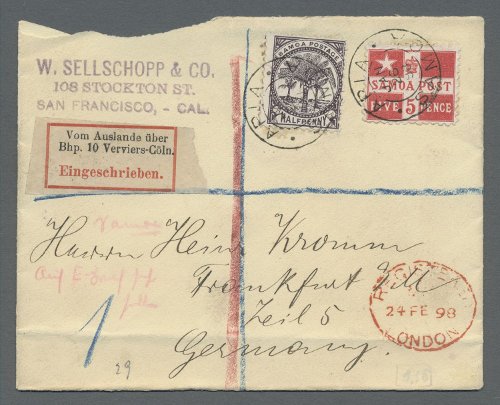 W. SELLSCHOPP & CO.
108 STOCKTON ST.
SAN FRANCISCO, - CAL.
SAMOA POSTAGE
HALFPENNY
SAMOA POST
FIVE 5 PENCE
APIA
Vom Auslande über
Bhp. 10 Verviers-Cöln.
Eingeschrieben.
Herrn Heinr Kromm
Frankfurt a/M
Zeil 5
Germany.
REGISTERED
24 FE 98
LONDON
1
29